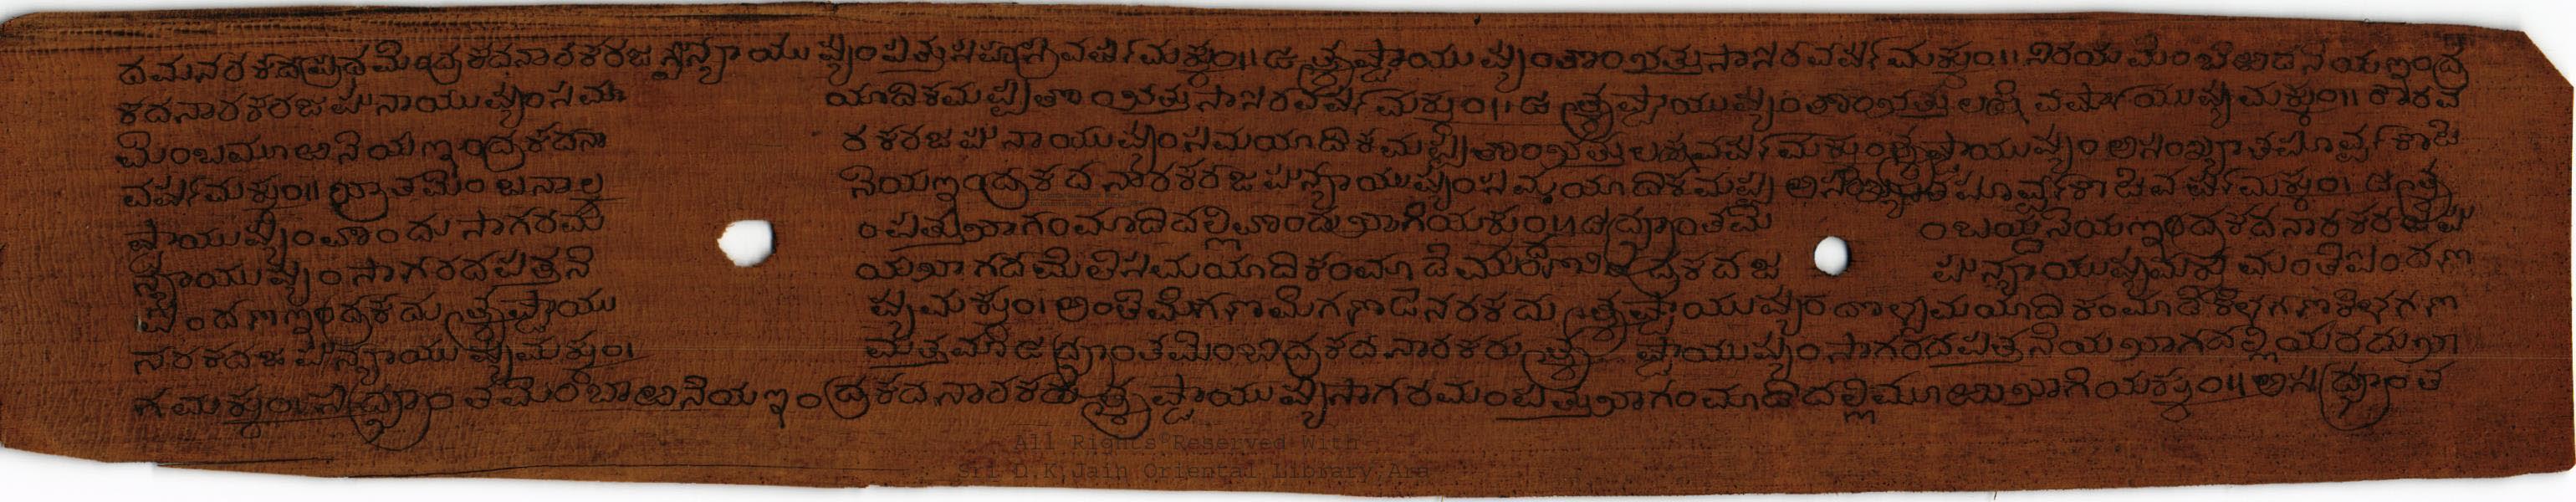 ದಮನರಕದಪ್ರಥಮೇಂದ್ರಕದನಾರಕರಜಘನ್ಯಾಯುಷ್ಯಂಪತ್ತುಸಹಸ್ರವರ್ಷಮಕ್ಕುಂ॥ಉತ್ಕೃಷ್ಟಾಯುಷ್ಯಂತೊಂಭತ್ತುಸಾಸಿರವರ್ಷಮಕ್ಕುಂ॥ನಿರಯಮೆಂಬೆರಡನೆಯಇಂದ್ರ
ಕದನಾರಕರಜಘನಾಯುಷ್ಯಂಸಮಯಾದಿಕಮಪ್ಪತೊಂಭತ್ತುಸಾಸಿರವರ್ಷಮಕ್ಕುಂ॥ಉತ್ಕೃಷ್ಟಾಯುಷ್ಯಂತೊಂಭತ್ತುಲಕ್ಷವರ್ಷಾಯುಷ್ಯಮಕ್ಕುಂ॥ರೌರವ
ಮೆಂಬಮೂಱನೆಯಇಂದ್ರಕದನಾರಕರಜಘನಾಯುಷ್ಯಂಸಮಯಾದಿಕಮಪ್ಪತೊಂಭತ್ತುಲಕ್ಷವರ್ಷಮಕ್ಕುಂಉತ್ಕೃಷ್ಟಾಯುಷ್ಯಂಅಸಂಖ್ಯಾತಪೂರ್ವ್ವಕೋಟಿ
ವರ್ಷಮಕ್ಕುಂ॥ಭ್ರಾಂತಮೆಂಬನಾಲ್ಕನೆಯಇಂದ್ರಕದನಾರಕರಜಘನ್ಯಾಯುಷ್ಯಂಸಮಯಾದಿಕಮಪ್ಪಅಸಂಖ್ಯಾತಪೂರ್ವ್ವಕೋಟಿವರ್ಷಮಕ್ಕುಂ।ಉತ್ಕೃ
ಷ್ಟಾಯುಷ್ಯಂವೊಂದುಸಾಗರಮಂಪತ್ತುಭಾಗಂಮಾಡಿದಲ್ಲಿವೊಂದುಭಾಗೆಯಕ್ಕುಂ॥ಉದ್ಭ್ರಾಂತಮೆಂಬಯ್ದನೆಯಇಂದ್ರಕದನಾರಕರಜಘ
ನ್ಯಾಯುಷ್ಯಂಸಾಗರದಪತ್ತನೆಯಭಾಗದಮೇಲೆಸಮಯಾದಿಕಂಮಾಡೆ ಘನ್ಯಾಯುಷ್ಯಮಕ್ಕುಮಂತೆಪಿಂದಣ
ಪಿಂದಣಇಂದ್ರಕದುತ್ಕೃಷ್ಟಾಯುಷ್ಯಮಕ್ಕುಂ।ಅಂತೆಮೇಗಣಮೇಗಣಡೆನರಕದುತ್ಕೃಷ್ಟಾಯುಷ್ಯಂ ಸಮಯಾದಿಕಂಮಾಡೆಕೆಳಗಣಕೆಳಗಣ
ನರಕದಜಘನ್ಯಾಯುಷ್ಯಮಕ್ಕುಂ।ಮತ್ತಮಾಉದ್ಭ್ರಾಂತಮೆಂಬಿಂದ್ರಕದನಾರಕರುತ್ಕೃಷ್ಟಾಯುಷ್ಯಂಸಾಗರದಪತ್ತನೆಯಭಾಗದಲ್ಲಿಯರದುಭಾ
ಗಮಕ್ಕುಂ।ಸಂಭ್ರಾಂತಮೆಂಬಾಱನೆಯಇಂದ್ರಕದನಾರಕರುತ್ಕೃಷ್ಟಾಯುಷ್ಯಸಾಗರಮಂಪತ್ತುಭಾಗಂಮಾಡಿದಲ್ಲಿಮೂಱುಭಾಗೆಯಕ್ಕುಂ॥ಅಸಂಭ್ರಾಂತ
All Rights Reserved With
Sri D.K.Jain Oriental Library, Ara